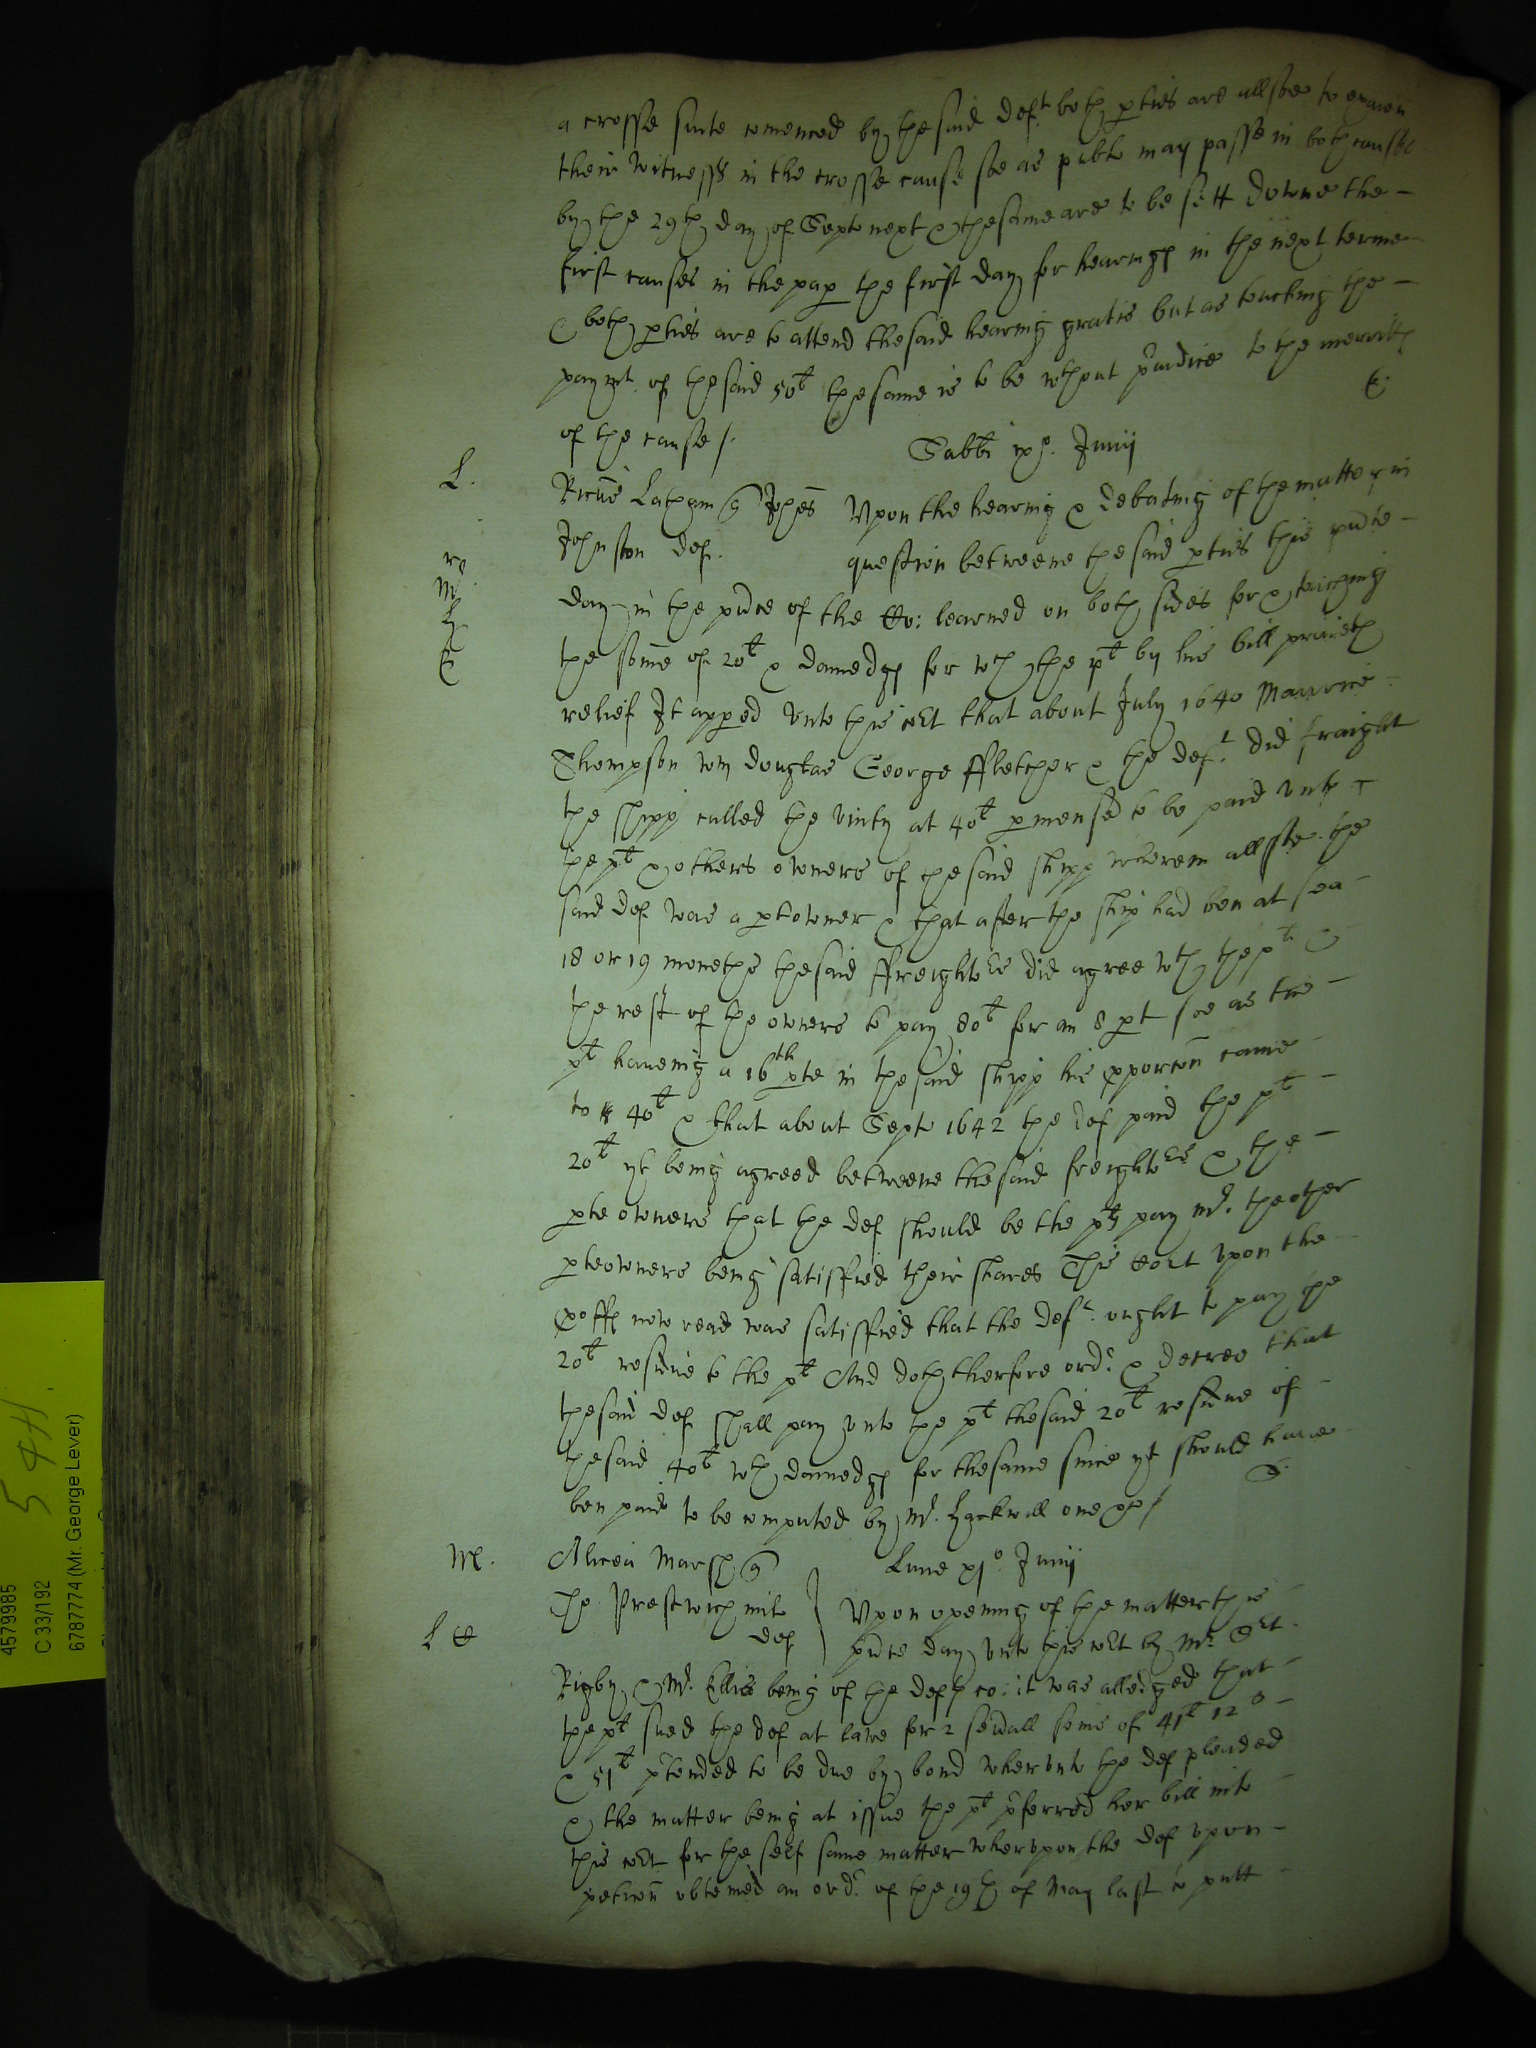 a crosse suite comenced by the said deft both pties are allsoe to examn
their witnesses in the crosse cause soe as publco may passe in both causes
by the 29th day of Septo next & the same are to be sett downe the –
first causes in the pap the first day for hearings in the next terme
& both pties are to attend the said hearing gratis but as touching the –
paymt of the said 50l the same is to be wthout piudice to the meritts
of the cause /.
Sabbi ixo. Junij
L. Ricus Latham q Johes Upon the hearing & debating of the matter in
Johnston def. question betweene the said pties this pnte –
day in the pnce of the Co: learned on both sides for & touching
the some of 20l & damedgs for wch the plt by his bill prayeth
relief It apped unto this cort that about July 1640 Maurice –
Thompson Wm Douglas George ffletcher & the deft did fraight
the shipp called the Unity at 40l p mensem to be paid unto –
the plt & others owners of the said shipp wherein allsoe the
said def was a pt owner & that after the ship had ben at sea –
18 or 19 moneths the said ffreightors did agree wth the plt &
the rest of the owners to pay 80l for an 8 pt soe as the –
plt haveing a 16th pte in the said shipp his pporcon came –
to 40l & that about Septo 1642 the def paid the plt –
20l yt being agreed betweene the said freightors & the –
pte owners that the def should be the plts pay mr. the other
pteowners being satisffied their shares This Cort upon the –
proffs now read was satisffied that the deft ought to pay the
20l residue to the plt And doth therfore ordr & decree that
the said def shall pay unto the plt the said 20l residue of –
the said 40l wth damedgs for the same since yt should have –
ben paid to be computed by Mr. Hackwill one &c /
M. Alicea Marsh q Lune xjo. Junij
Tho Prestwich milt def Upon opening of the matter this –
pnte day unto this cort by Mr Srt.
Rigby & Mr. Ellis being of the defts co: it was alledged that –
the plt sued the def at lawe for 2 severall somes of 41l 12s –
& 51l ptended to be due by bond wherunto the def pleaded
& the matter being at issue the plt pferred her bill into –
this cort for the self same matter wherupon the def upon –
peticon obteined an ordr. of the 19th of May last to putt –
4579985
C 33/192
6787774 (Mr. George Lever)